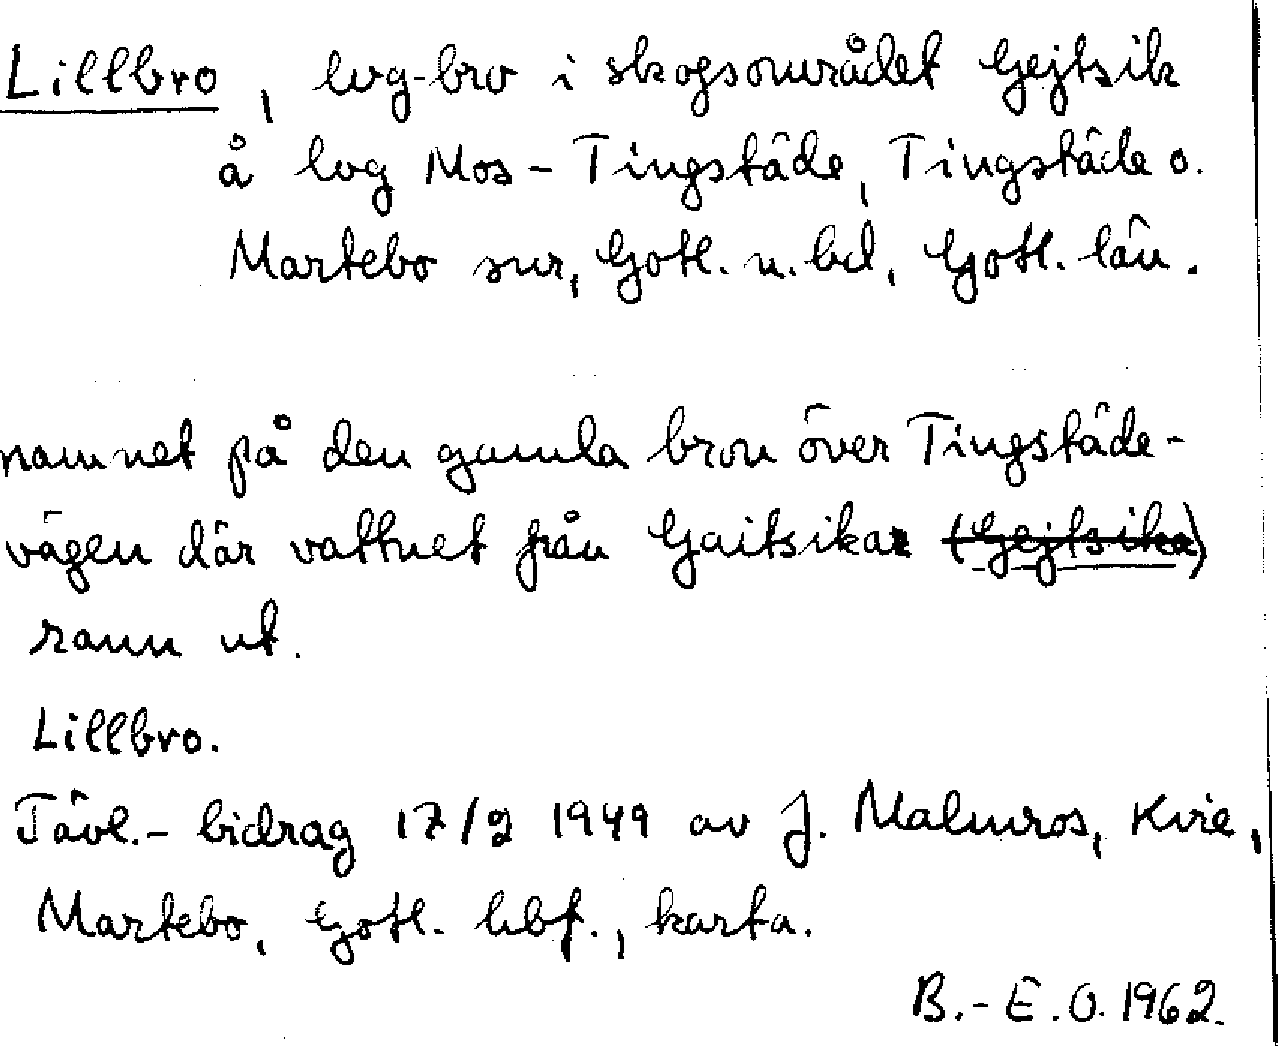 Lillbro, lvg-bro i skogsområdet Gejtsik
å lvg Mos - Tingstäde, Tingstäde o.
Martebo snr, Gotl. n. hd, Gotl. län.
namnet på den gamla bron över Tingstäde-
vägen där vattnet från Gaitsikar (Gejtsika)
rann ut.
Lillbro.
Tävl.- bidrag 17/2 1949 av J. Malmros, Kvie,
Martebo, Gotl. hbf., karta.
B.-E.O. 1962.